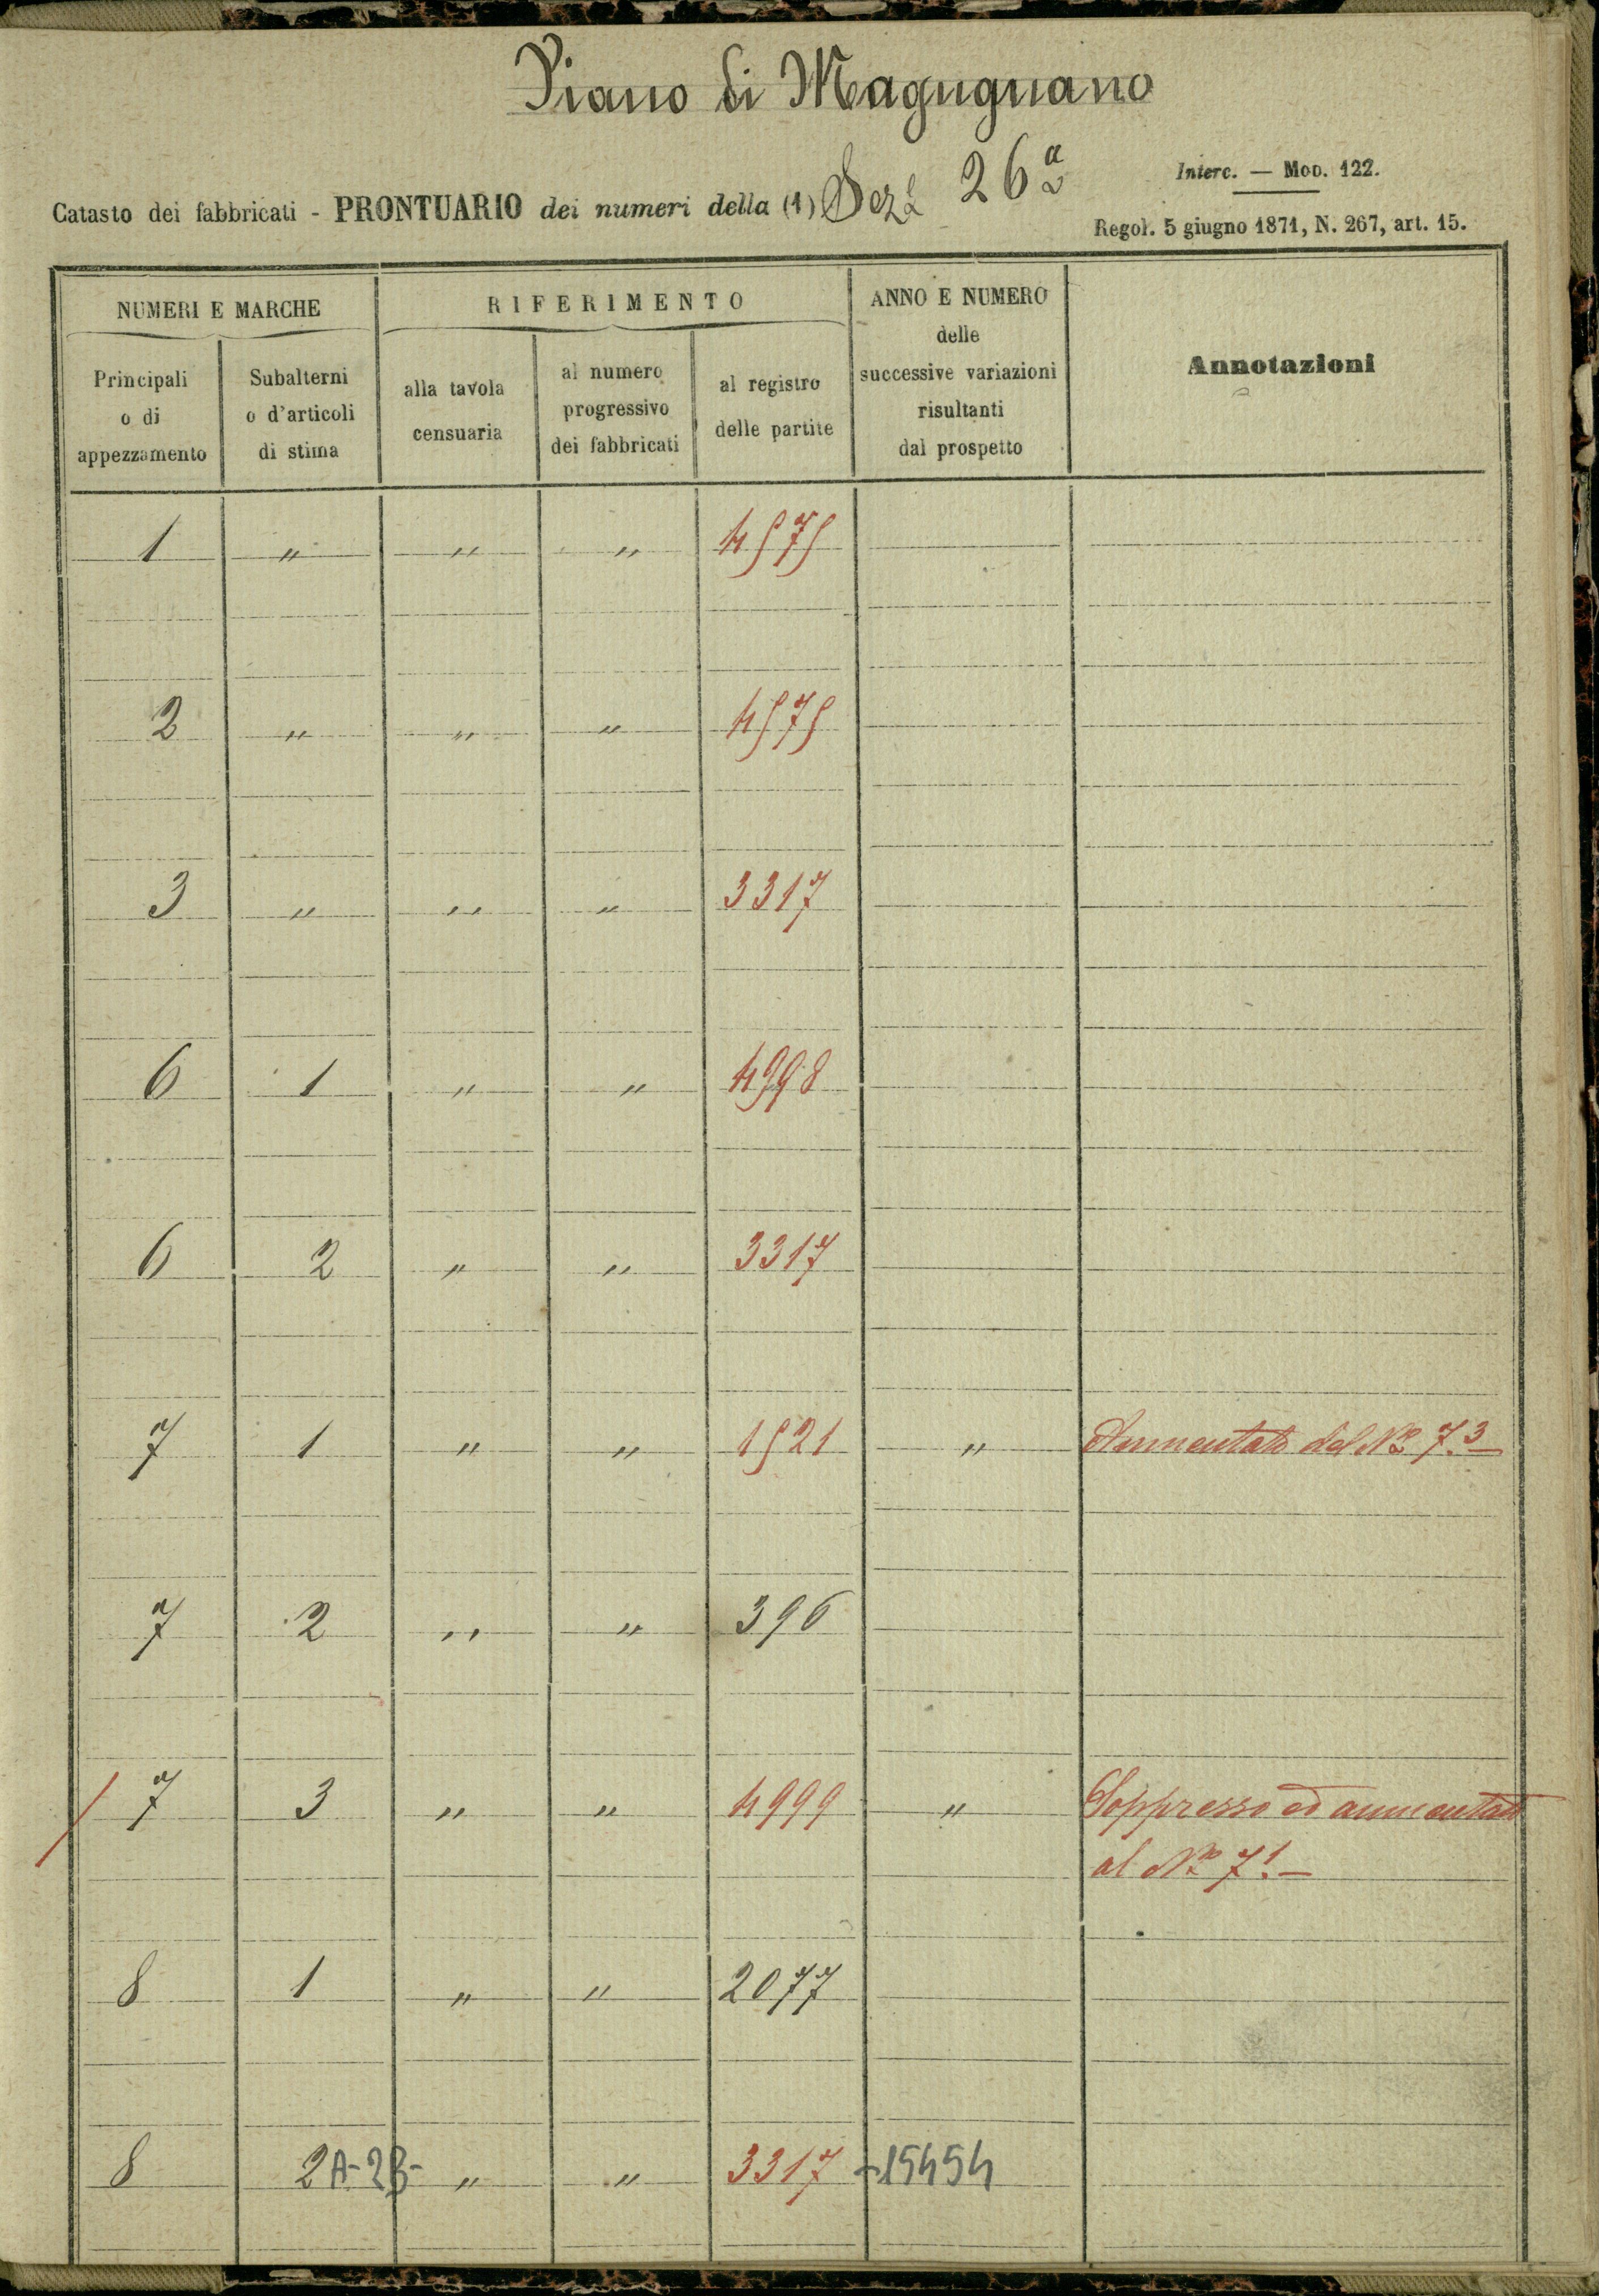 Piano di Magugnano
Interc. — Mod. 122.
Catasto dei fabbricati - PRONTUARIO dei numeri della (1) Sez.e 26a
Regol. 5 giugno 1871, N. 267, art. 15.
NUMERI E MARCHE
RIFERIMENTO
ANNO E NUMERO
delle
successive variazioni
risultanti
dal prospetto
Annotazioni
Principali
o di
appezzamento
Subalterni
o d'articoli
di stima
alla tavola
censuaria
al numero
progressivo
dei fabbricati
al registro
delle partite
1 " " " 4575
2 " " " 4575
3 " " " 3317
6 1 " " 4998
6 2 " " 3317
7 1 " " 1521 " Aumentato del No 7.3
7 2 " " 396
/ 7 3 " " 4999 " Soppresso ed aumentato
al No 7.1 —
8 1 " " 2077
8 2A-2B- " " 3317 -15454